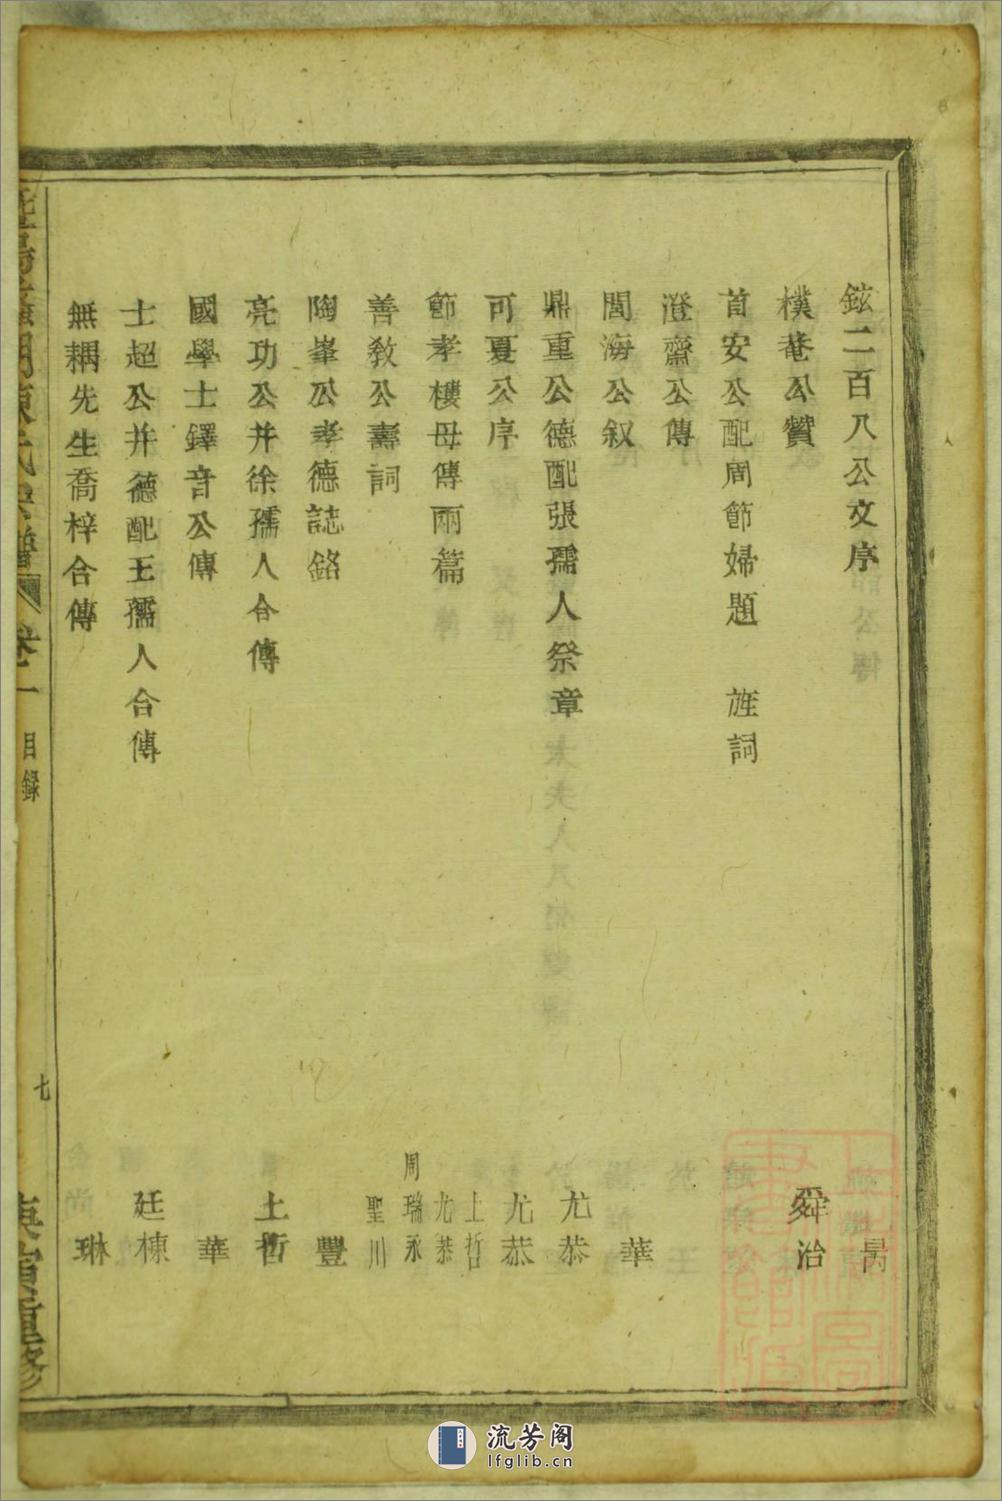 鉉二百八公文序 昺
樸菴公贊 舜治
首安公配周節婦題 旌詞
澄齋公傳
閩海公叙 華
鼎重公德配張孺人祭章 尤恭
可夏公序 尤恭
節孝樓母傳兩篇 上哲 尤恭
善教公壽詞 周瑞永 聖川
陶峯公孝德誌銘 豐
亮功公并徐孺人合傳 士哲
國學士鐸音公傳 華
士超公并德配王孺人合傳 廷棟
無耦先生喬梓合傳 琳
陳氏宗譜 卷一 目録 七 庚寅重修
流芳阁
lfglib.cn